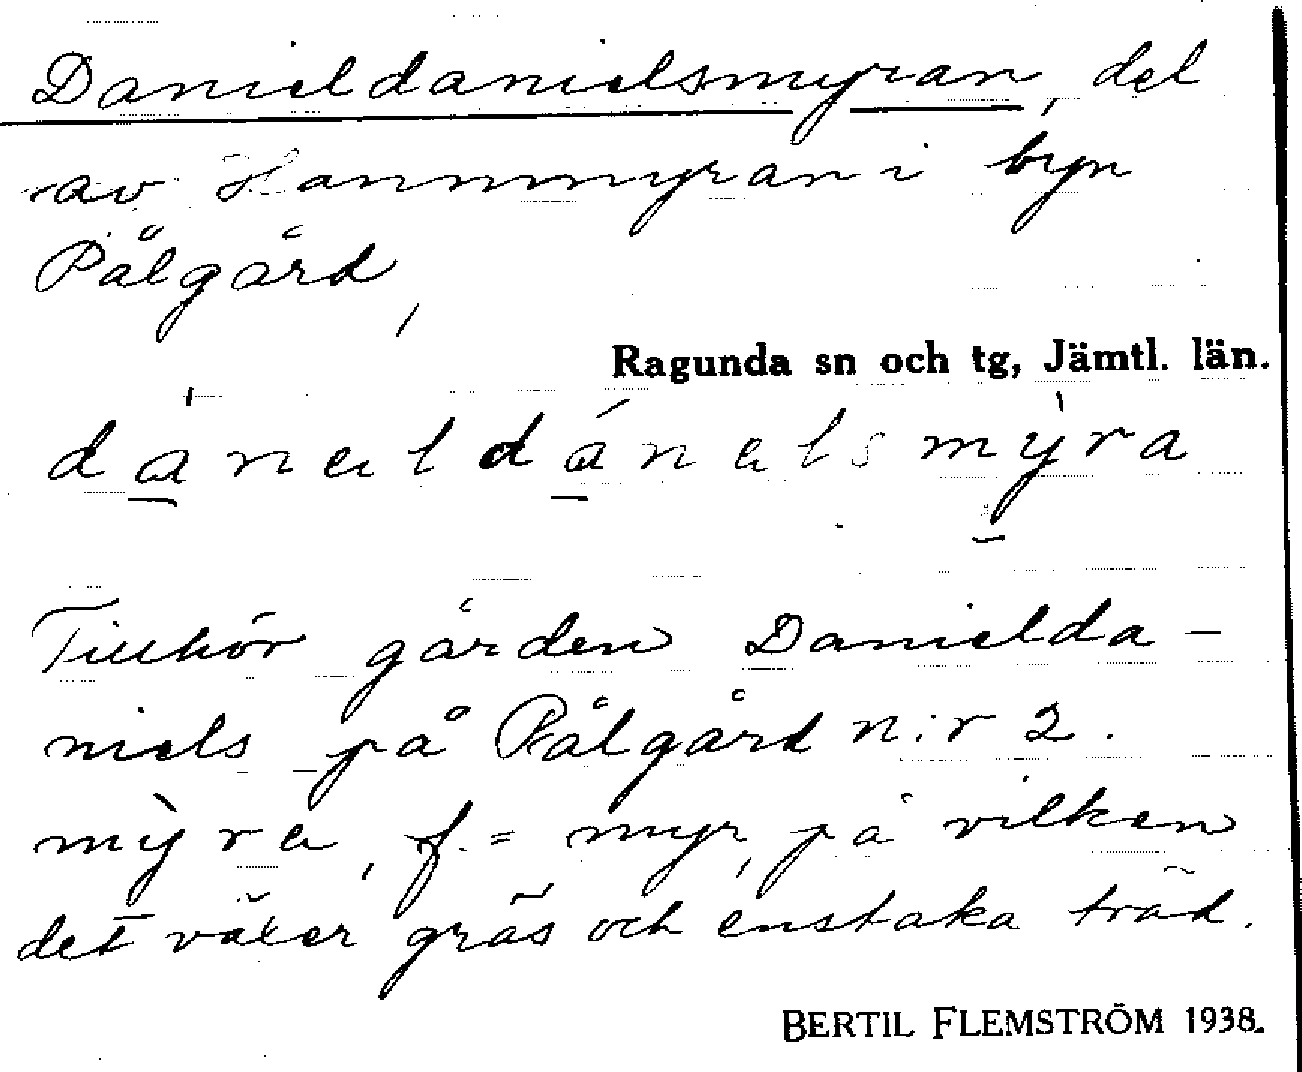 Danieldanielsmyran, del
av Hammmyran i byn
Pålgård,
Ragunda sn och tg, Jämtl. län.
Tillhör gården Danielda-
niels på Pålgård n:r 2.
f. = myr, på vilken
det växer gräs och enstaka träd.
BERTIL FLEMSTRÖM 1938.